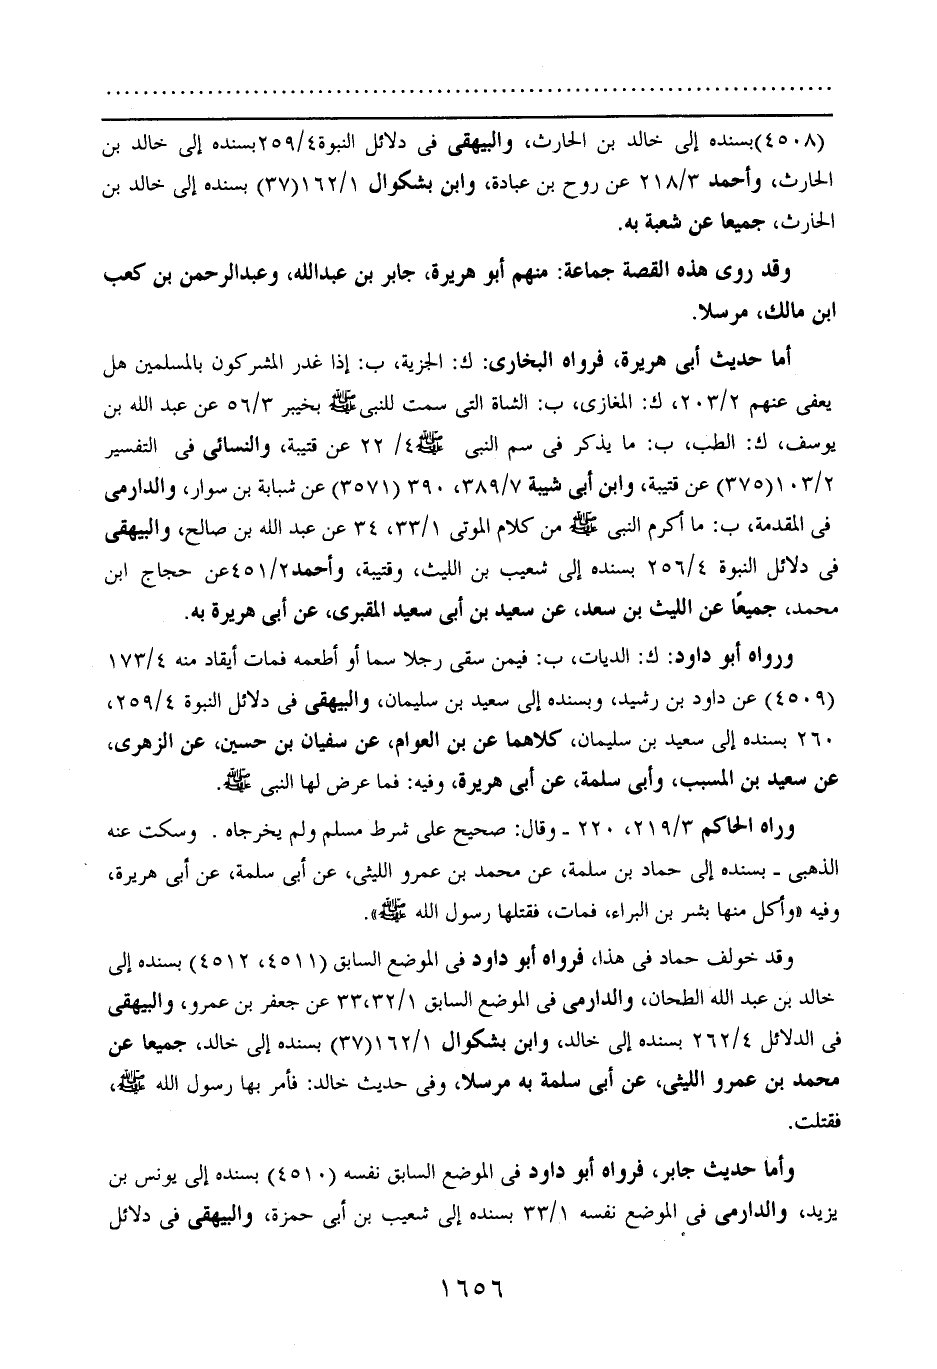 (٤٥٠٨)بسنده إلى خالد بن الحارث، والبيهقى فى دلائل النبوة٢٥٩/٤بسنده إلى خالد بن
الحارث، وأحمد ٢١٨/٣ عن روح بن عبادة، وابن بشكوال ١٦٢/١(٣٧) بسنده إلى خالد بن
الحارث، جميعا عن شعبة به.
وقد روى هذه القصة جماعة: منهم أبو هريرة، جابر بن عبدالله، وعبدالرحمن بن كعب
ابن مالك، مرسلا.
أما حديث أبى هريرة، فرواه البخارى: ك: الجزية، ب: إذا غدر المشركون بالمسلمين هل
يعفى عنهم ٢٠٣/٢، ك: المغازى، ب: الشاة التى سمت للنبى ﷺ بخيبر ٥٦/٣ عن عبد الله بن
يوسف، ك: الطب، ب: ما يذكر فى سم النبى ﷺ ٤/ ٢٢ عن قتيبة، والنسائى فى التفسير
١٠٣/٢(٣٧٥) عن قتيبة، وابن أبى شيبة ٣٨٩/٧، ٣٩٠ (٣٥٧١) عن شبابة بن سوار، والدارمى
فى المقدمة، ب: ما أكرم النبى ﷺ من كلام الموتى ٣٣/١، ٣٤ عن عبد الله بن صالح، والبيهقى
فى دلائل النبوة ٢٥٦/٤ بسنده إلى شعيب بن الليث، وقتيبة، وأحمد٤٥١/٢عن حجاج ابن
محمد، جميعًا عن الليث بن سعد، عن سعيد بن أبى سعيد المقبرى، عن أبى هريرة به.
ورواه أبو داود: ك: الديات، ب: فيمن سقى رجلا سما أو أطعمه فمات أيقاد منه ١٧٣/٤
(٤٥٠٩) عن داود بن رشيد، وبسنده إلى سعيد بن سليمان، والبيهقى فى دلائل النبوة ٢٥٩/٤،
٢٦٠ بسنده إلى سعيد بن سليمان، كلاهما عن بن العوام، عن سفيان بن حسين، عن الزهرى،
عن سعيد بن المسبب، وأبى سلمة، عن أبى هريرة، وفيه: فما عرض لها النبى ﷺ.
وراه الحاكم ٢١٩/٣، ٢٢٠ ـ وقال: صحيح على شرط مسلم ولم يخرجاه . وسكت عنه
الذهبى ـ بسنده إلى حماد بن سلمة، عن محمد بن عمرو الليثى، عن أبى سلمة، عن أبى هريرة،
وفيه «وأكل منها بشر بن البراء، فمات، فقتلها رسول الله ﷺ».
وقد خولف حماد فى هذا، فرواه أبو داود فى الموضع السابق (٤٥١١، ٤٥١٢) بسنده إلى
خالد بن عبد الله الطحان، والدارمى فى الموضع السابق ٣٣،٣٢/١ عن جعفر بن عمرو، والبيهقى
فى الدلائل ٢٦٢/٤ بسنده إلى خالد، وابن بشكوال ١٦٢/١(٣٧) بسنده إلى خالد، جميعا عن
محمد بن عمرو الليثى، عن أبى سلمة به مرسلا، وفى حديث خالد: فأمر بها رسول الله ﷺ،
فقتلت.
وأما حديث جابر، فرواه أبو داود فى الموضع السابق نفسه (٤٥١٠) بسنده إلى يونس بن
يزيد، والدارمى فى الموضع نفسه ٣٣/١ بسنده إلى شعيب بن أبى حمزة، والبيهقى فى دلائل
١٦٥٦